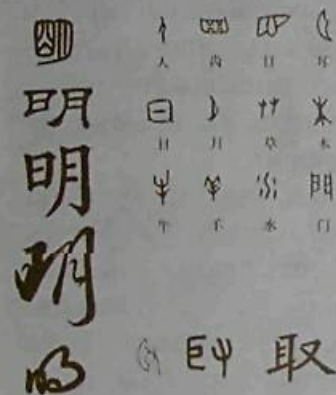 明
明
明
明
明
人 齿 目 耳
日 月 草 木
牛 羊 水 门
取 取